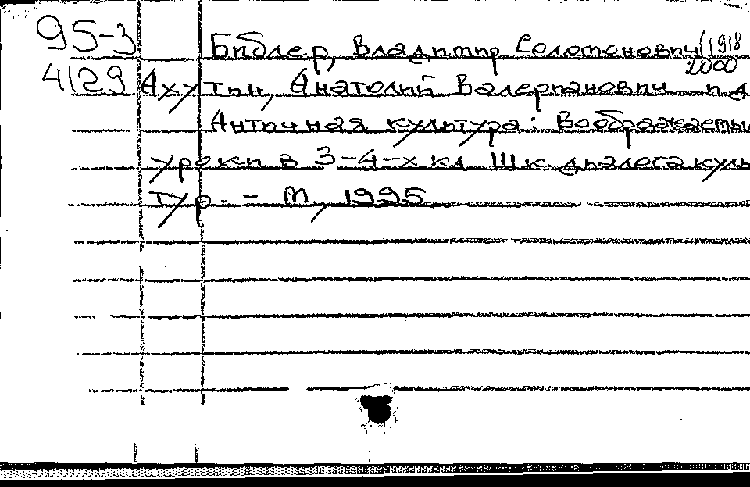 95-3 Библер, Владимир Соломонович (1918
4129 Ахутин, Анатолий Валерианович 2000
Античная культура: Воображаемые
уроки в 3-4-х кл Шк диалога куль
тур. - М, 1995